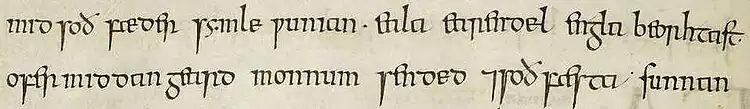 mid soð fæder symle ƿunian · eala earendel engla beorhtast ·
ofer middangeard monnum sended ⁊ soðfæsta sunnan